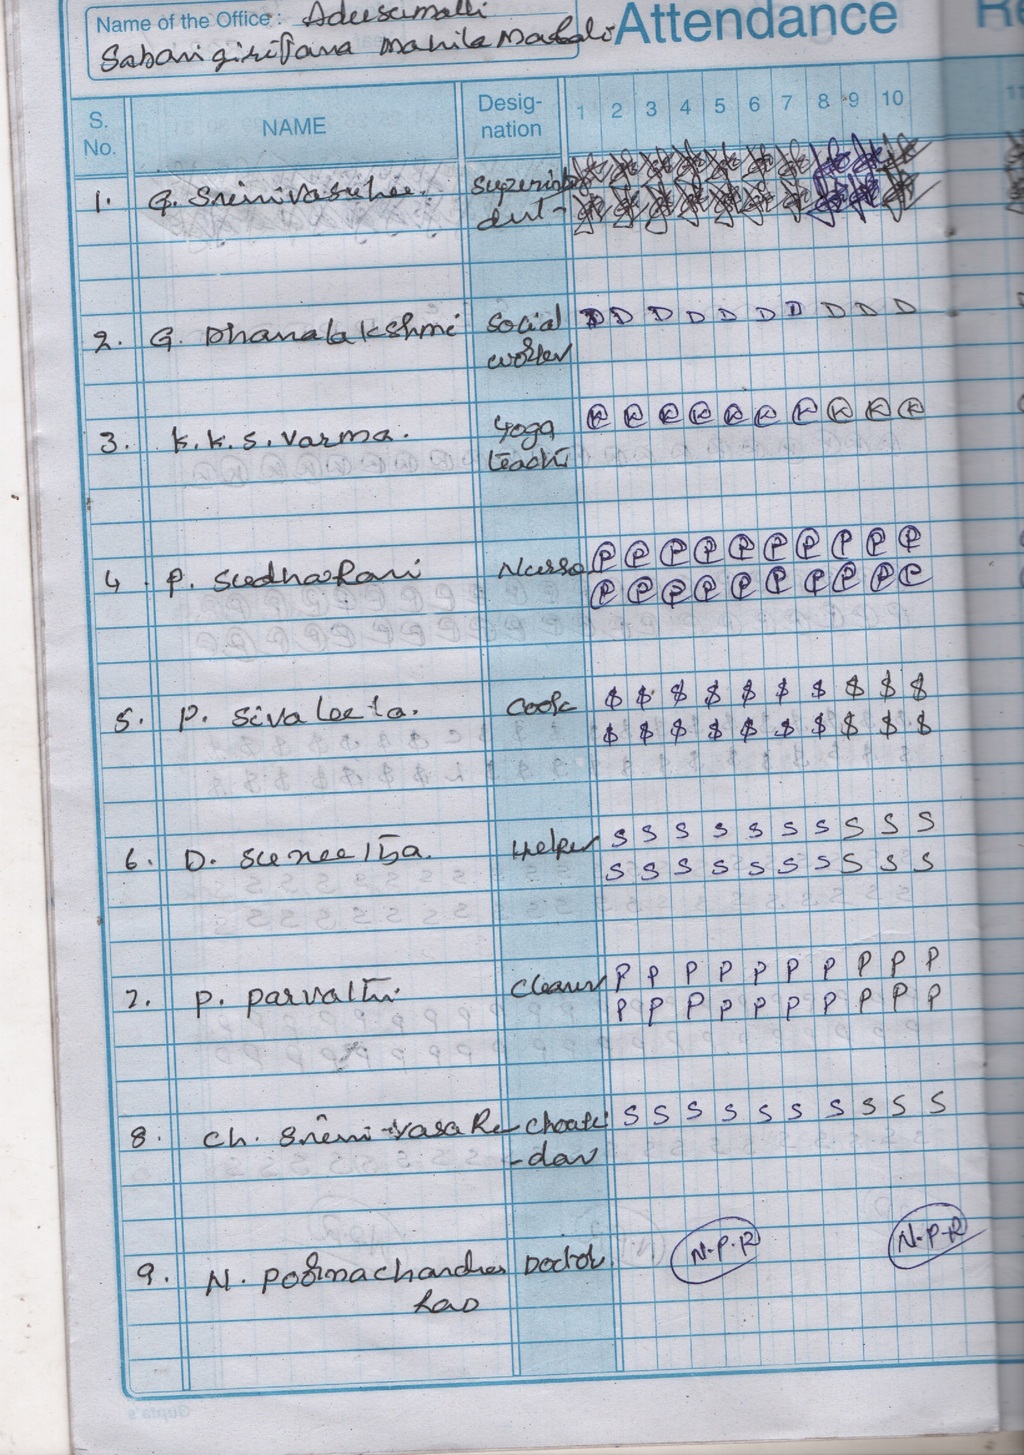 Name of the Office : Adusumalli
Sabari girijana mahila mandali
Attendance Re
S. No. NAME Desig-nation 1 2 3 4 5 6 7 8 9 10 11
1. G. Srinivasulu Superinten
dent-
2. G. Dhanalakshmi Social D D D D D D D D D D
worker
3. K.K.S. Varma. Yoga K K K K K K K K K K
teacher
4. P. SudhaRani Nurse P P P P P P P P P P
P P P P P P P P P P
5. P. Siva leela. Cook $ $ $ $ $ $ $ $ $ $
$ $ $ $ $ $ $ $ $ $
6. D. Suneetha. Helper S S S S S S S S S S
S S S S S S S S S S
7. P. Parvathi Cleaner P P P P P P P P P P
P P P P P P P P P P
8. Ch. Srinivasa R S S S S S S S S S S
-dar
9. N. Poornachandra Doctor N.P.R N.P.R
Rao